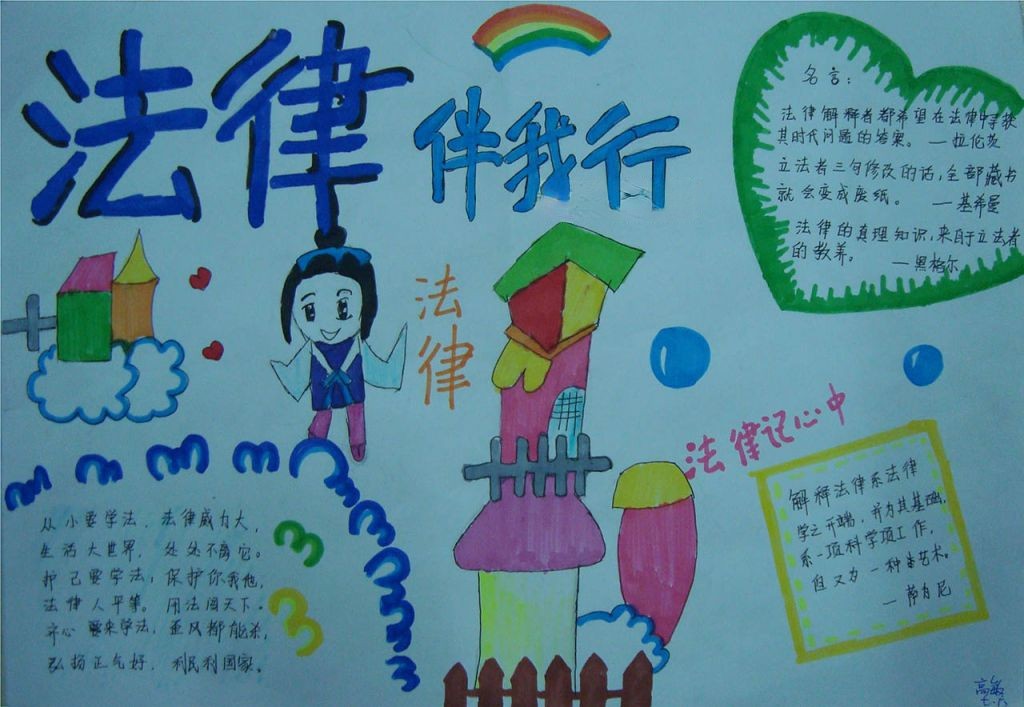 法律
伴我行
名言：
法律解释者都希望在法律中寻获
其时代问题的答案。—拉伦茨
立法者三句修改的话，全部藏书
就会变成废纸。—基希曼
法律的真理知识，来自于立法者
的教养。—黑格尔
法律
法律记心中
解释法律系法律
学之开端，并为其基础，
系一项科学项工作，
但又为一种艺术。
—萨为尼
从小要学法，法律威力大，
生活大世界，处处不离它。
护己要学法，保护你我他，
法律人平等。用法闯天下。
齐心要来学法，歪风都能杀，
弘扬正气好，利民利国家。
高敏
七.六